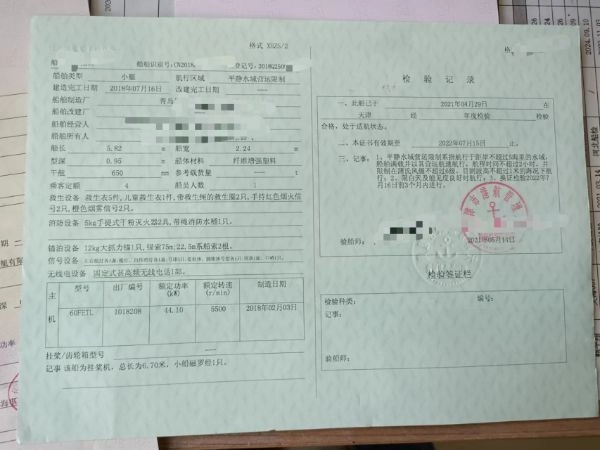 格式 XBZS/2
船舶识别号: CN2018
登记号: 3018G2500
船舶类型 小艇 航行区域 平静水域营运限制
建造完工日期 2018年07月16日 改建完工日期 ---
船舶制造厂 青岛
船舶改建厂
船舶经营人
船舶所有人
船长 5.82 船宽 2.24
型深 0.95 船体材料 纤维增强塑料
干舷 650 参考载货量 ---
乘客定额 4 船员人数 1
救生设备 救生衣5件,儿童救生衣1件,带救生绳的救生圈2只,手持红色烟火信号2只,橙色烟雾信号2只。
消防设备 5kg手提式干粉灭火器2具,带绳消防水桶1只。
锚泊设备 12kg大抓力锚1只,锚索75m;22.5m系船索2根。
信号设备
无线电设备 固定式甚高频无线电话1部。
主机 型号 出厂编号 额定功率(kW) 额定转速(r/min) 制造日期
60FETL 1018208 44.10 5500 2018年02月03日
挂桨/齿轮箱型号 ---
记事 该船为挂桨机,总长为6.70米,小船磁罗经1只。
检验记录
一、此船已于 2021年04月29日 在
天津 经 年度检验 检验
合格,处于适航状态。
二、本证书有效期至 2022年07月15日 止。
三、记事: 1、平静水域营运限制系指航行于距岸不超过5海里的水域,
船舶满载并以其营运航速航行,航程时间不超过2小时,并
限制在蒲氏风级不超过6级,目测波高不超过1米的海况下航
行;2、限白天及能见度良好时航行。3、换证检验2022年7
月16日前3个月内进行。
验船师:
2021年05月14日
检验签证栏
检验种类: 编号:
记事:
验船师: